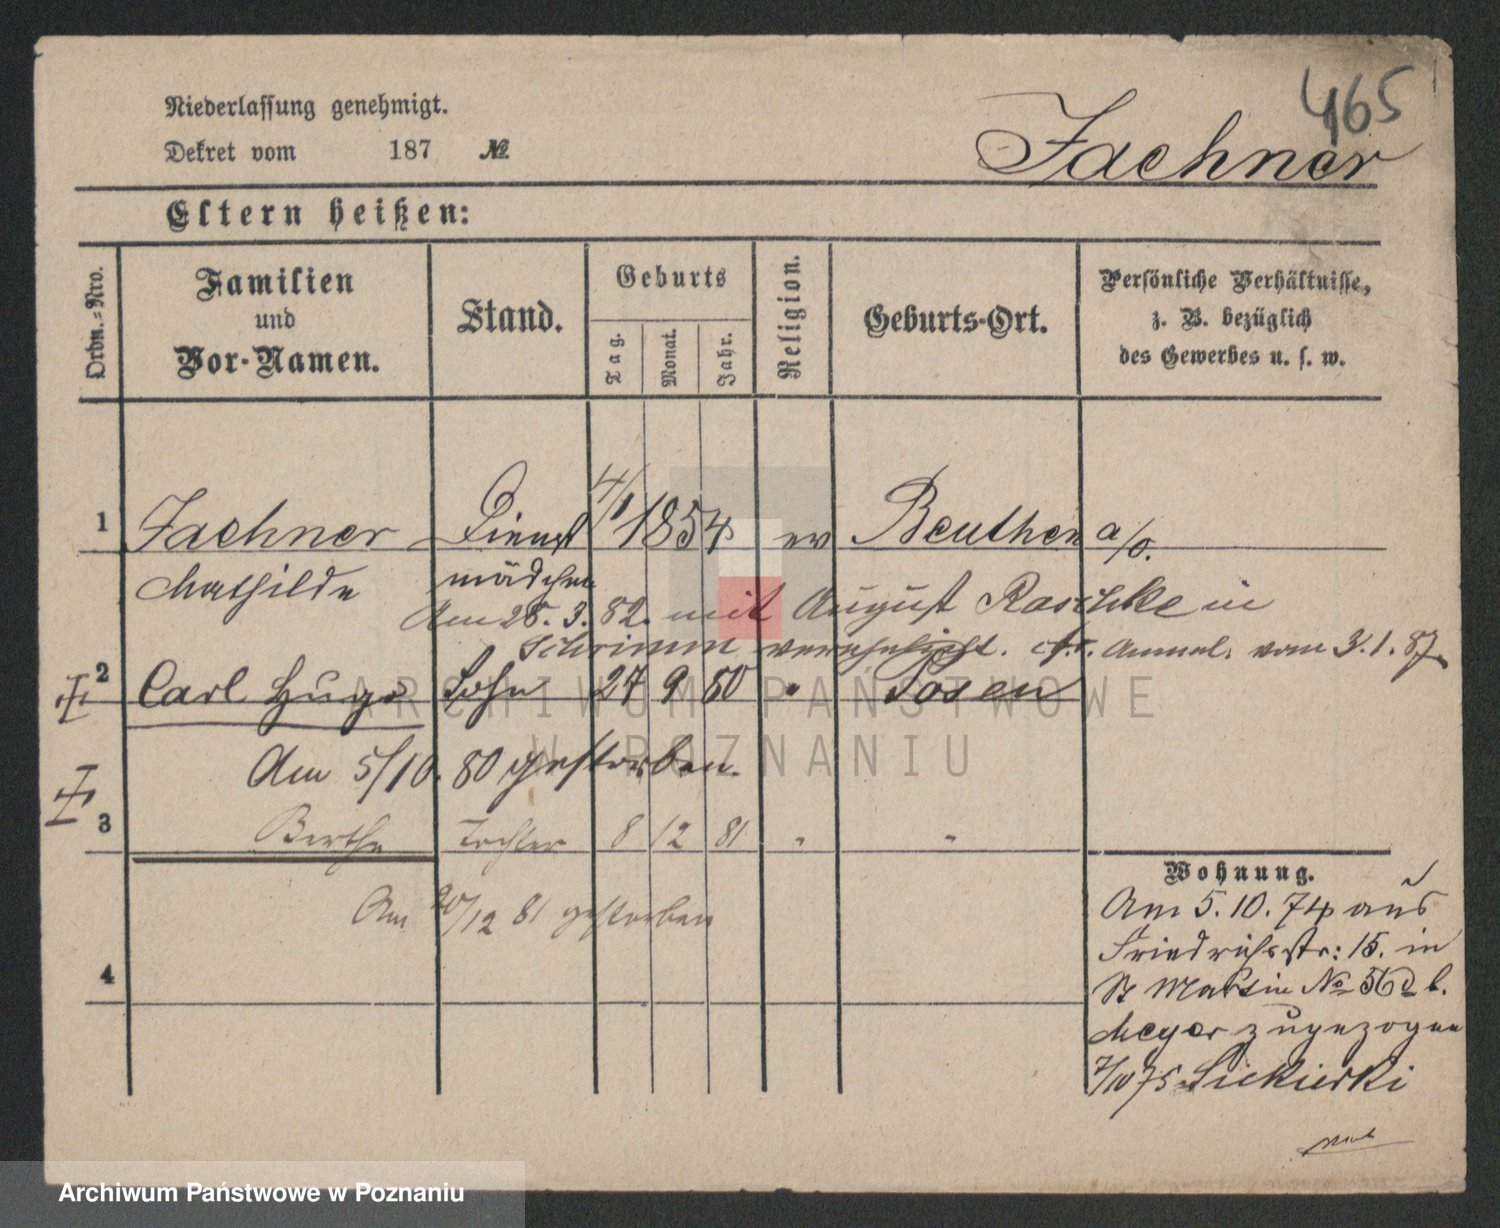 465
Niederlassung genehmigt.
Dekret vom 187 № Fachner
Eltern heißen:
Ordn.-Nro.
Familien und Vor-Namen.
Stand.
Geburts
Tag.
Monat.
Jahr.
Religion.
Geburts-Ort.
Persönliche Verhältnisse,
z. B. bezüglich
des Gewerbes u. s. w.
1 Fachner Dienst 4/1 1854 ev Beuthen a/O.
Mathilde mädchen
Am 28. 3. 82. mit August Raschke in
Schrimm verehelicht. Anmel. vom 3.1.87
2 Carl Hugo Sohn 27 9 80 " Posen
Am 5/10. 80 gestorben.
3 Bertha Tochter 8 12 81 " "
Am 20/12 81 gestorben
4
Wohnung.
Am 5. 10. 74 aus
Friedrichsstr: 15. in
St Martin No 56 b.
Meyer zugezogen
75 Siekierski
ARCHIWUM PAŃSTWOWE
W POZNANIU
Archiwum Państwowe w Poznaniu